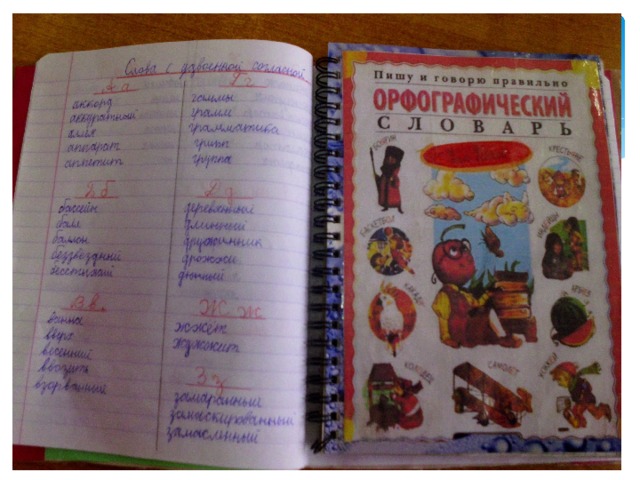 Слова с двоенной согласной
А а
аккорд
аккуратный
аллея
аппарат
аппетит
Б б
бассейн
балл
баллон
беззвёздный
бесстыжий
В в
ванна
вверх
весенний
вводить
взорванный
Г г
гаммы
грамм
грамматика
грипп
группа
Д д
деревянный
длинный
дружинник
дрожжи
дынный
Ж ж
жжёт
жужжит
З з
замаранный
замаскированный
замасленный
Пишу и говорю правильно
ОРФОГРАФИЧЕСКИЙ
СЛОВАРЬ
БОЯРИН
КРЕСТЬЯНЕ
БАСКЕТБОЛ
КАКАДУ
АРБУЗ
КОЛОДЕЦ
САМОЛЕТ
ХОККЕЙ